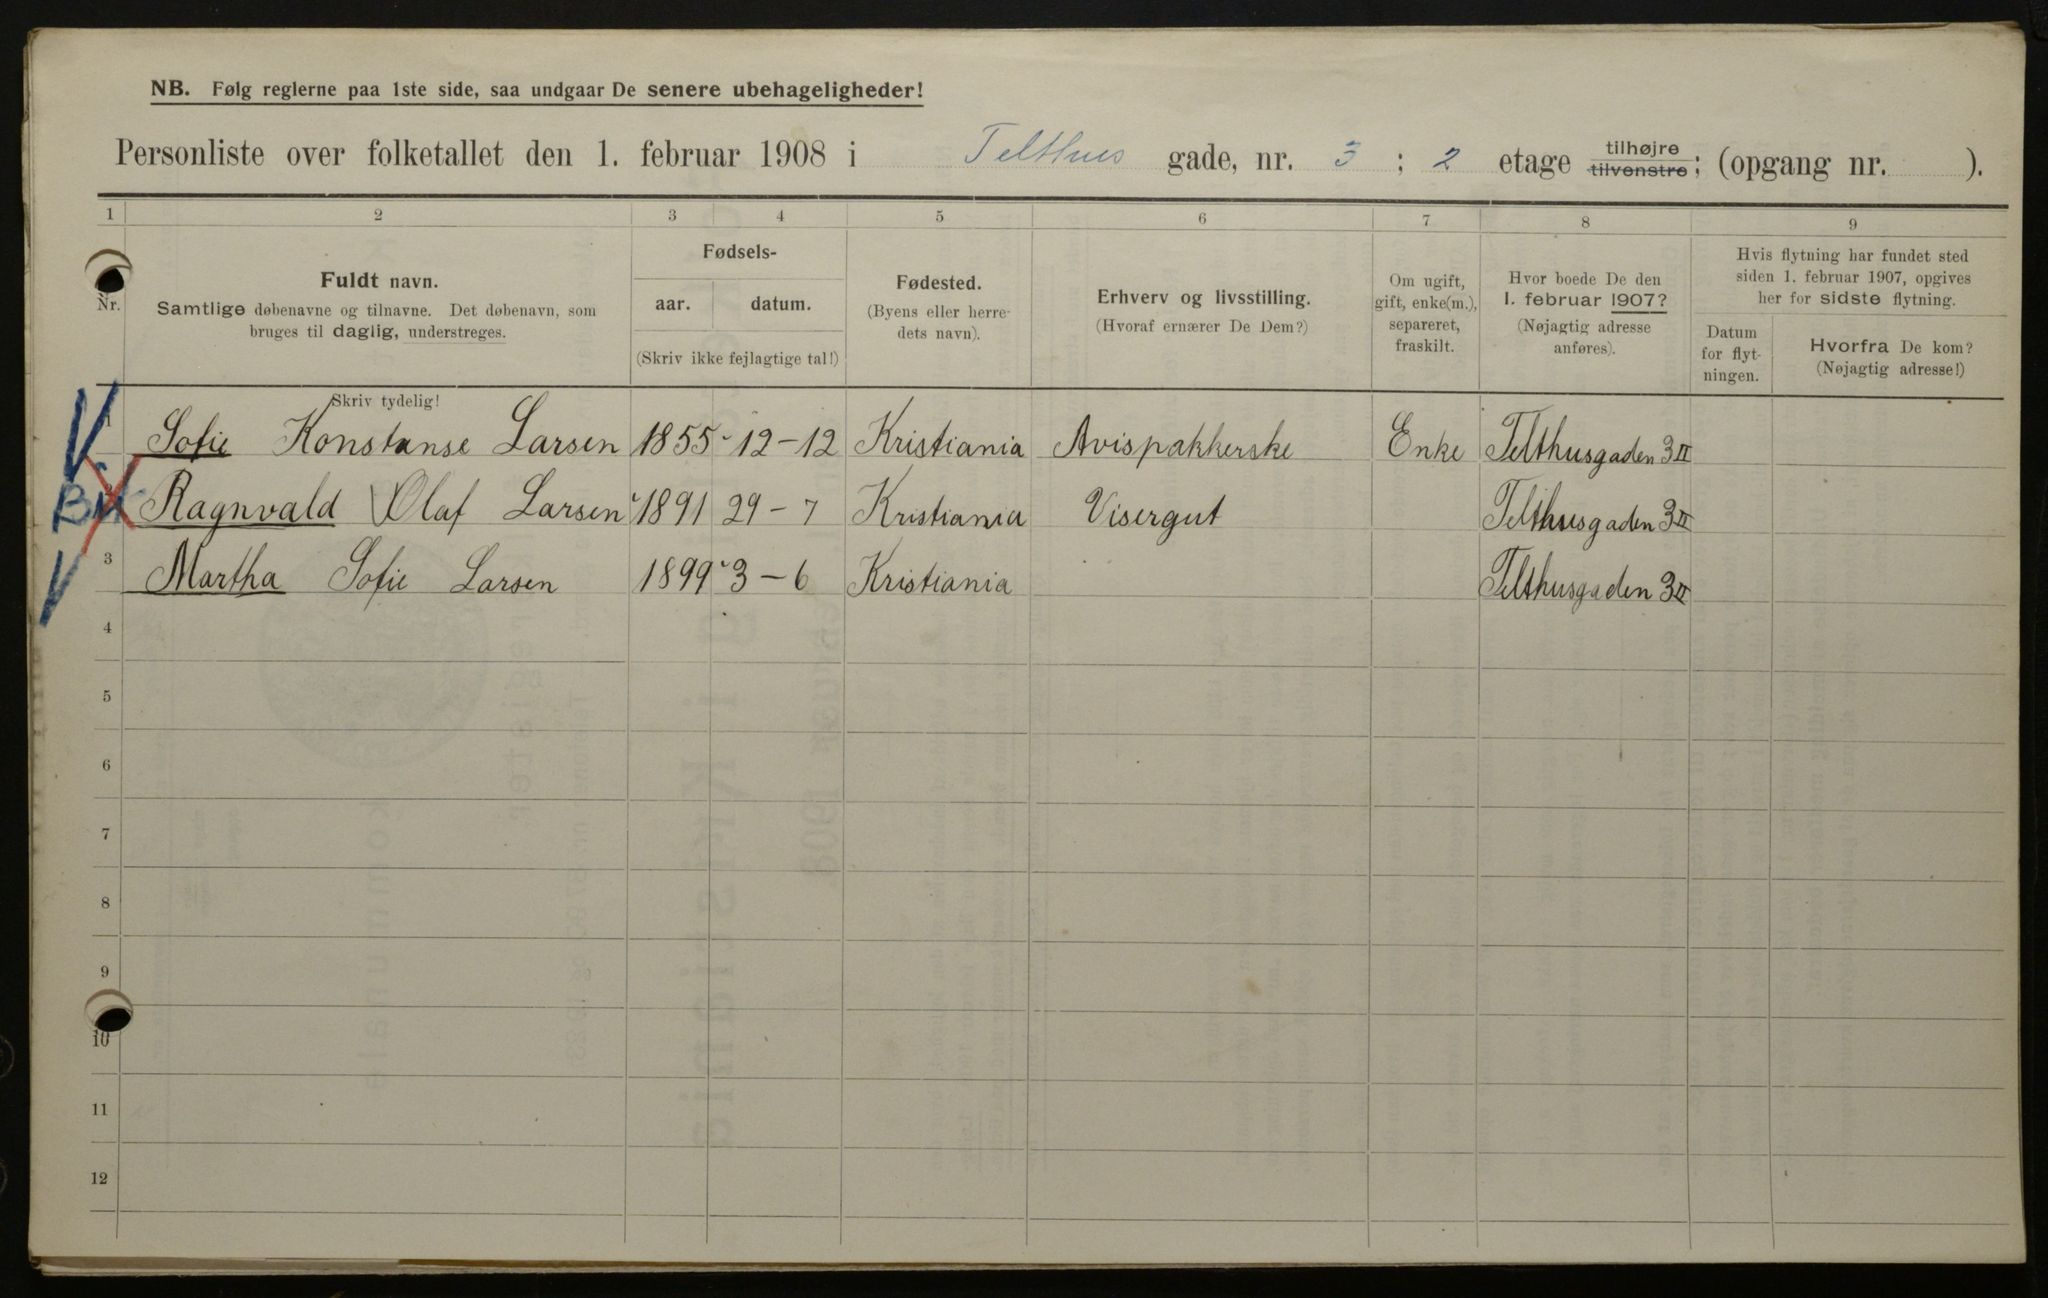 NB. Følg reglerne paa 1ste side, saa undgaar De senere ubehageligheder!
Personliste over folketallet den 1. februar 1908 i Telthus gade, nr. 3 ; 2 etage tilhøjre tilvenstre; (opgang nr. ).
1 2 3 4 5 6 7 8 9
Nr.
Fuldt navn.
Samtlige døbenavne og tilnavne. Det døbenavn, som
bruges til daglig, understreges.
Skriv tydelig!
Fødsels-
aar. datum.
(Skriv ikke fejlagtige tal!)
Fødested.
(Byens eller herre-
dets navn).
Erhverv og livsstilling.
(Hvoraf ernærer De Dem?)
Om ugift,
gift, enke(m.),
separeret,
fraskilt.
Hvor boede De den
1. februar 1907?
(Nøjagtig adresse
anføres).
Hvis flytning har fundet sted
siden 1. februar 1907, opgives
her for sidste flytning.
Datum
for flyt-
ningen.
Hvorfra De kom?
(Nøjagtig adresse!)
1 Sofie Konstanse Larsen 1855 12-12 Kristiania Avispakkerske Enke Telthusgaden 3 II
2 Ragnvald Olaf Larsen 1891 29-7 Kristiania Visergut Telthusgaden 3 II
3 Martha Sofie Larsen 1899 3-6 Kristiania Telthusgaden 3 II
4
5
6
7
8
9
10
11
12